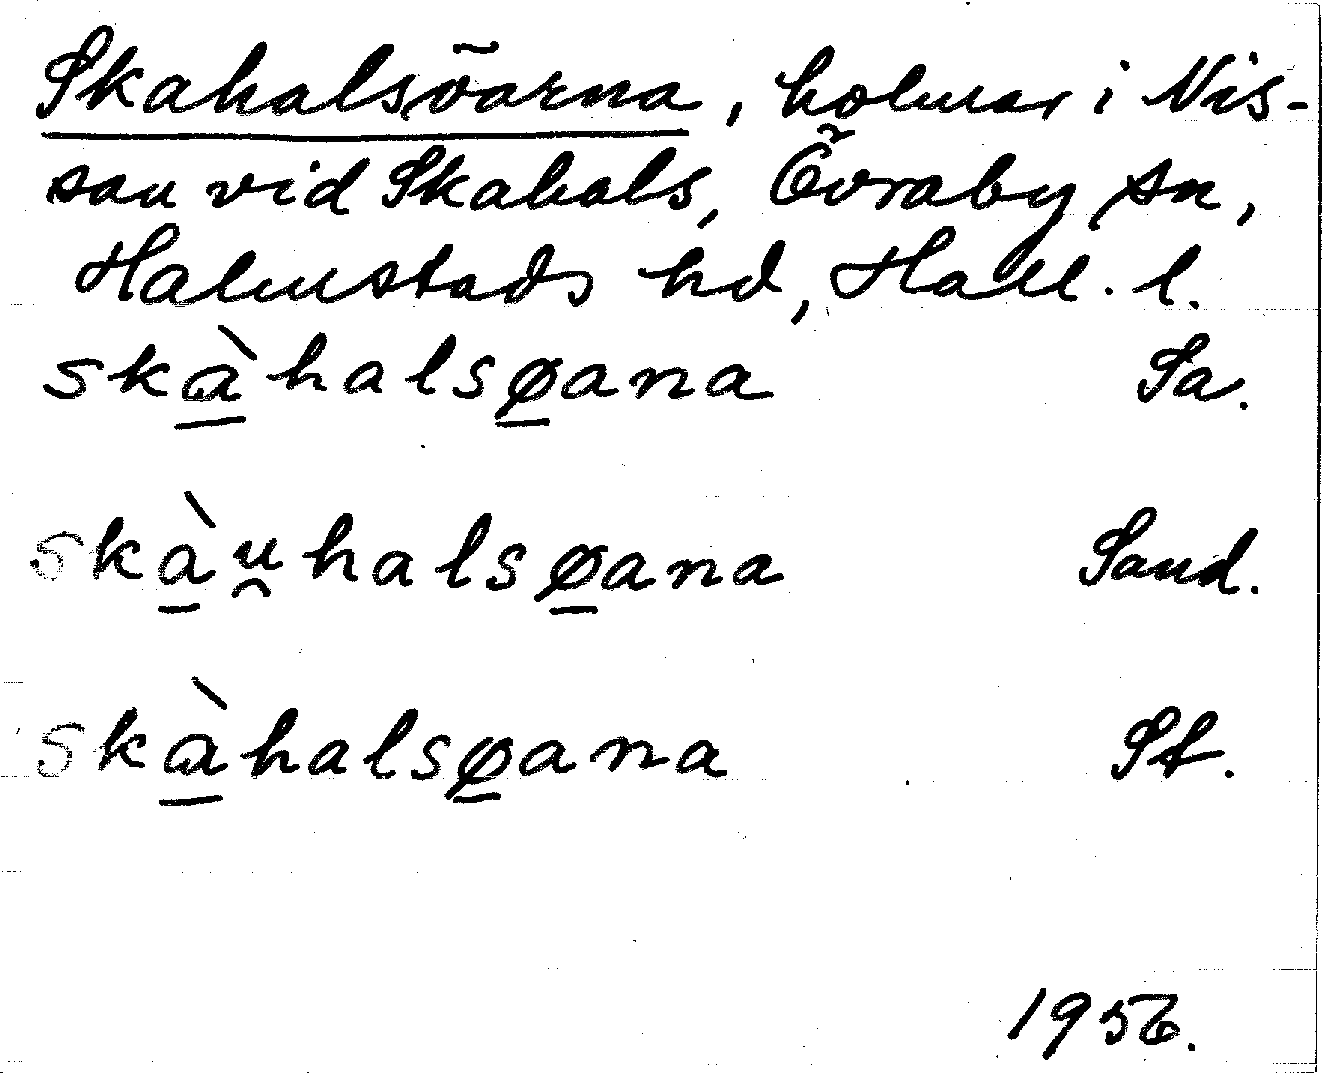 Skahalsöarna, holmar i Nis-
san vid Skahals, Övraby sn,
Halmstads hd, Hall. l.
skàhalsøana Sa.
skàu̯halsøana Sand.
skàhalsøana St.
1956.